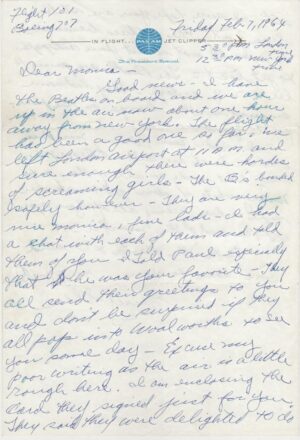 Flight 101
Boeing 707
Friday Feb. 7, 1964
IN FLIGHT... PAN AM JET CLIPPER
5:30 PM London
12:30 PM New York
time
Dear Monica -
Good news - I have
the Beatles on board and we are
up in the air now about one hour
away from New York. The flight
has been a good one so far; we
left London airport at 11 AM and
sure enough there were hordes
of screaming girls - The B's boarded
safely however - They are very
nice Monica, fine lads - I had
a chat with each of them and told
them of you I told Paul especially
that he was your favorite - They
all send their greetings to you
and don't be surprised if they
all pop in to Woolworths to see
you some day - Excuse my
poor writing as the air is a little
rough here. I am enclosing the
card they signed just for you.
They said they were delighted to do